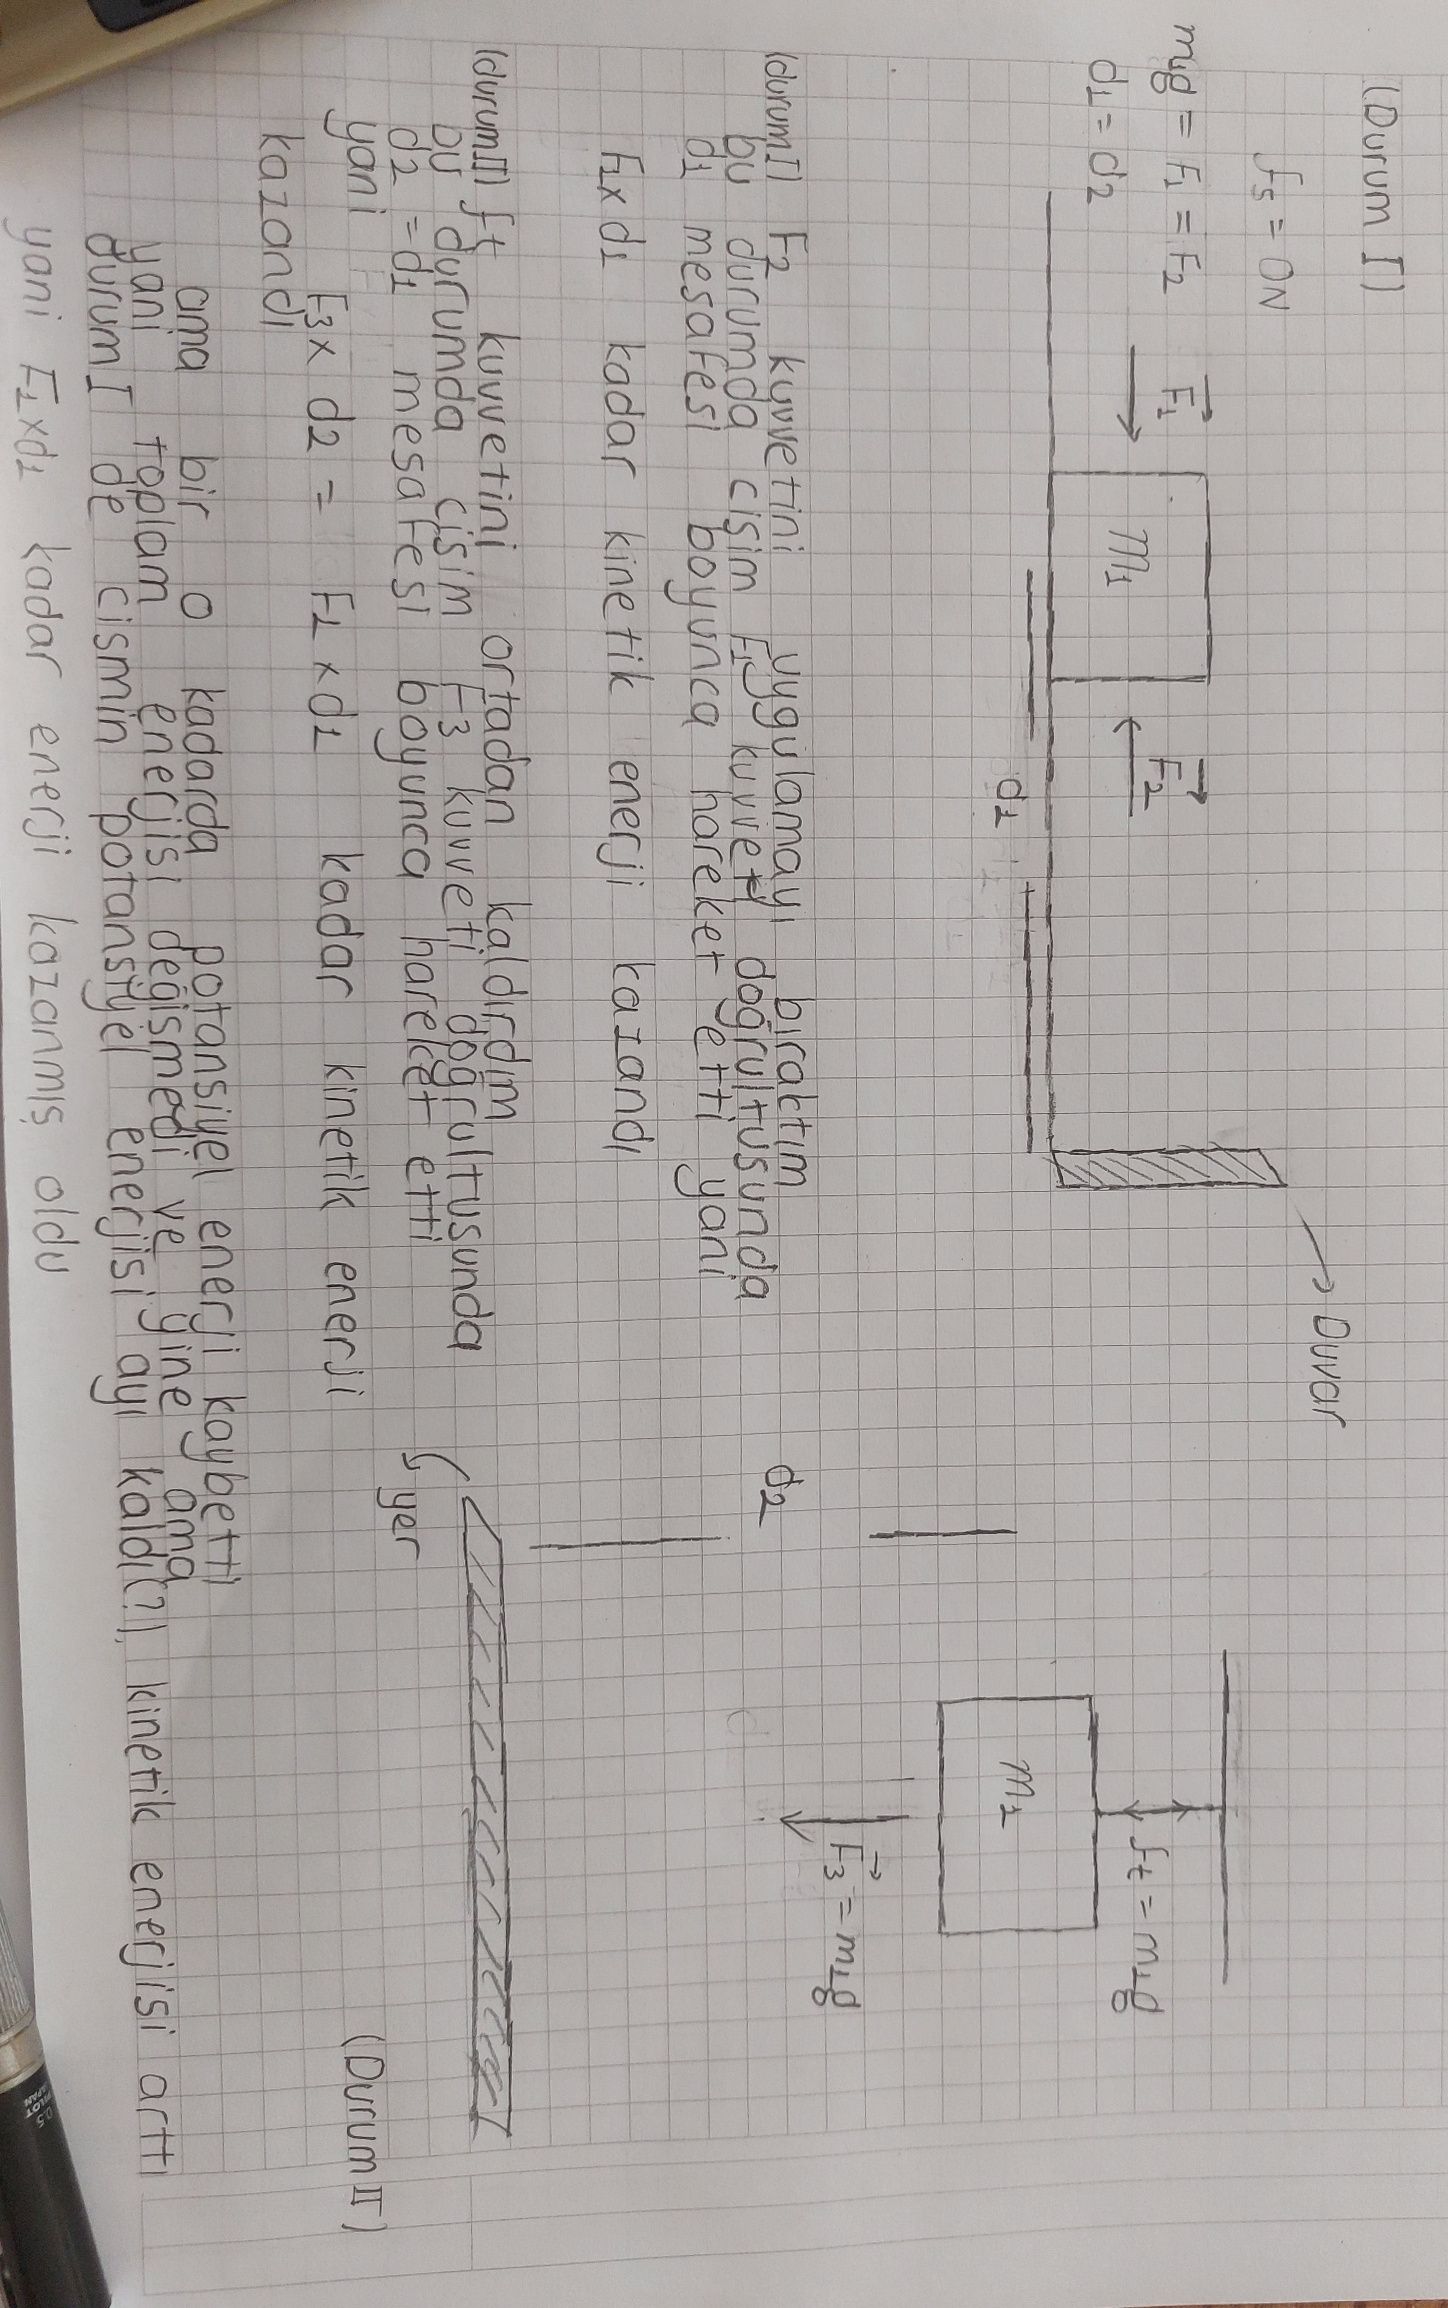 (Durum I)
fs = 0N
m₁g = F₁ = F₂
d₁ = d₂
F₁
m₁
F₂
d₁
Duvar
ft = m₁g
m₁
F₃ = m₁g
d₂
yer
(Durum II)
(durum I) F₂ kuvvetini uygulamayı bıraktım
bu durumda cisim F₁ kuvveti doğrultusunda
d₁ mesafesi boyunca hareket etti yani
F₁ x d₁ kadar kinetik enerji kazandı
(durum II) ft kuvvetini ortadan kaldırdım
bu durumda cisim F₃ kuvveti doğrultusunda
d₂ = d₁ mesafesi boyunca hareket etti
yani
F₃ x d₂ = F₁ x d₁ kadar kinetik enerji
kazandı
ama bir o kadarda potansiyel enerji kaybetti
yani toplam enerjisi değişmedi ve yine ama
durum I de cismin potansiyel enerjisi ayı kaldı(?), kinetik enerjisi arttı
yani F₁ x d₁ kadar enerji kazanmış oldu
PILOT
JAPAN
0.5